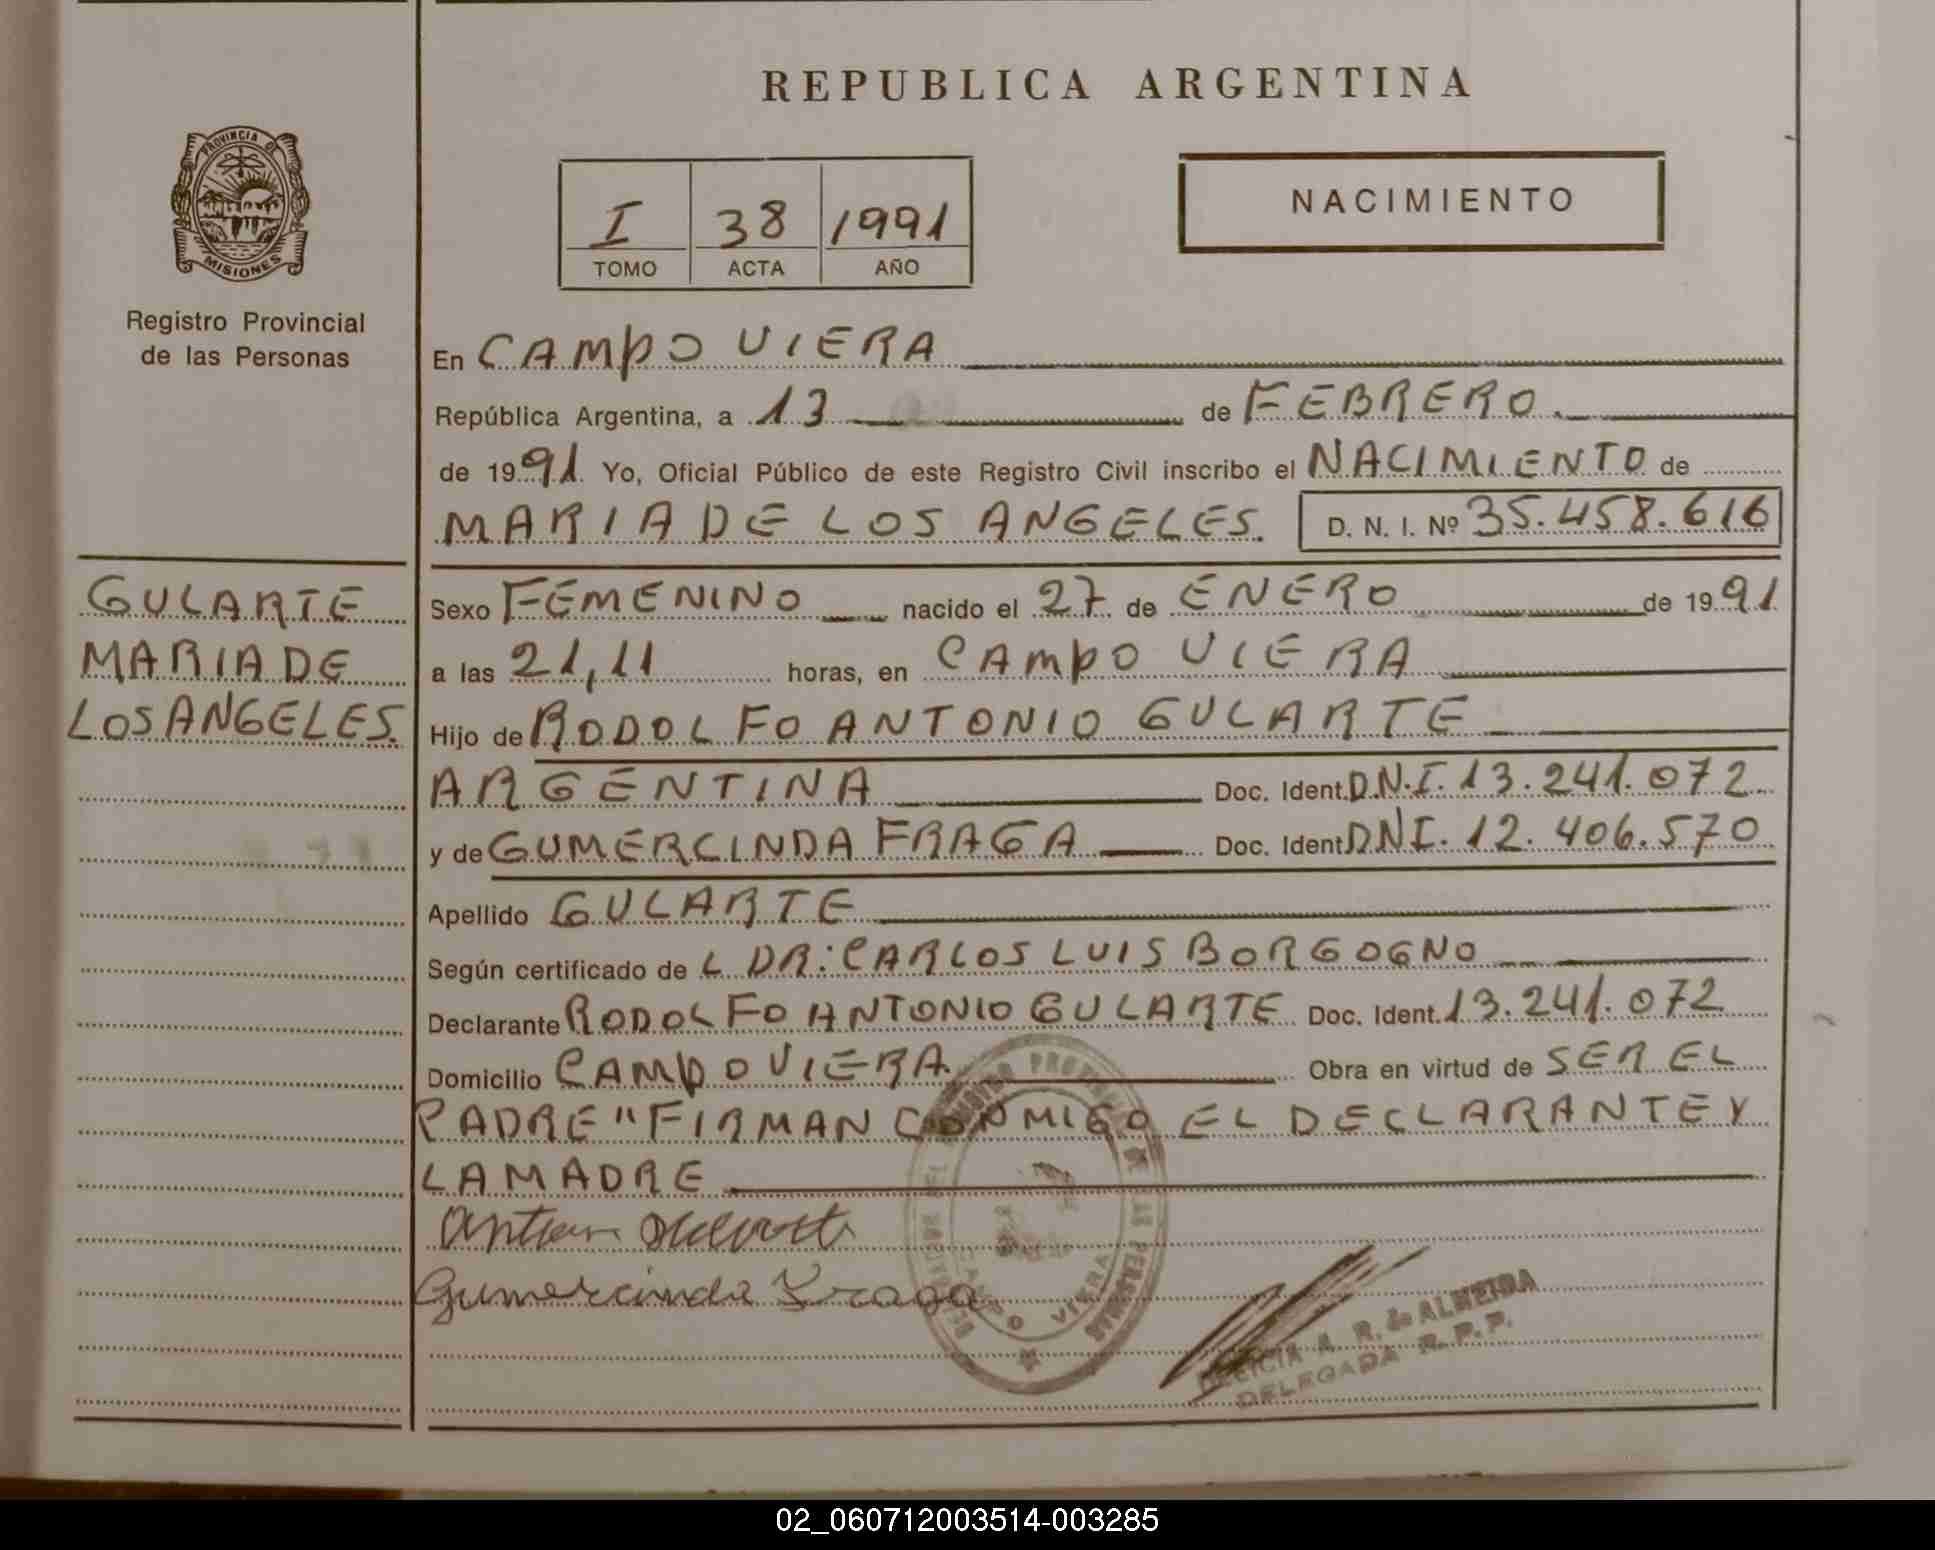 REPUBLICA ARGENTINA
PROVINCIA DE
MISIONES
Registro Provincial
de las Personas
I 38 1991
TOMO ACTA AÑO
NACIMIENTO
En CAMPO VIERA
República Argentina, a 13 de FEBRERO
de 1991 Yo, Oficial Público de este Registro Civil inscribo el NACIMIENTO de
MARIA DE LOS ANGELES. D. N. I. Nº 35.458.616
GULARTE
MARIA DE
LOS ANGELES.
Sexo FEMENINO nacido el 27 de ENERO de 1991
a las 21,11 horas, en CAMPO VIERA
Hijo de RODOLFO ANTONIO GULARTE
ARGENTINA Doc. Ident. D.N.I. 13.241.072
y de GUMERCINDA FRAGA Doc. Ident. DNI. 12.406.570
Apellido GULARTE
Según certificado de L DR: CARLOS LUIS BORGOGNO
Declarante RODOLFO ANTONIO GULARTE Doc. Ident. 13.241.072
Domicilio CAMPO VIERA. Obra en virtud de SER EL
PADRE "FIRMAN CONMIGO EL DECLARANTE Y
LA MADRE
Gumercinda Fraga
CAMPO VIERA
A. R. de ALMEIDA
DELEGADA R. P. P.
02_060712003514-003285